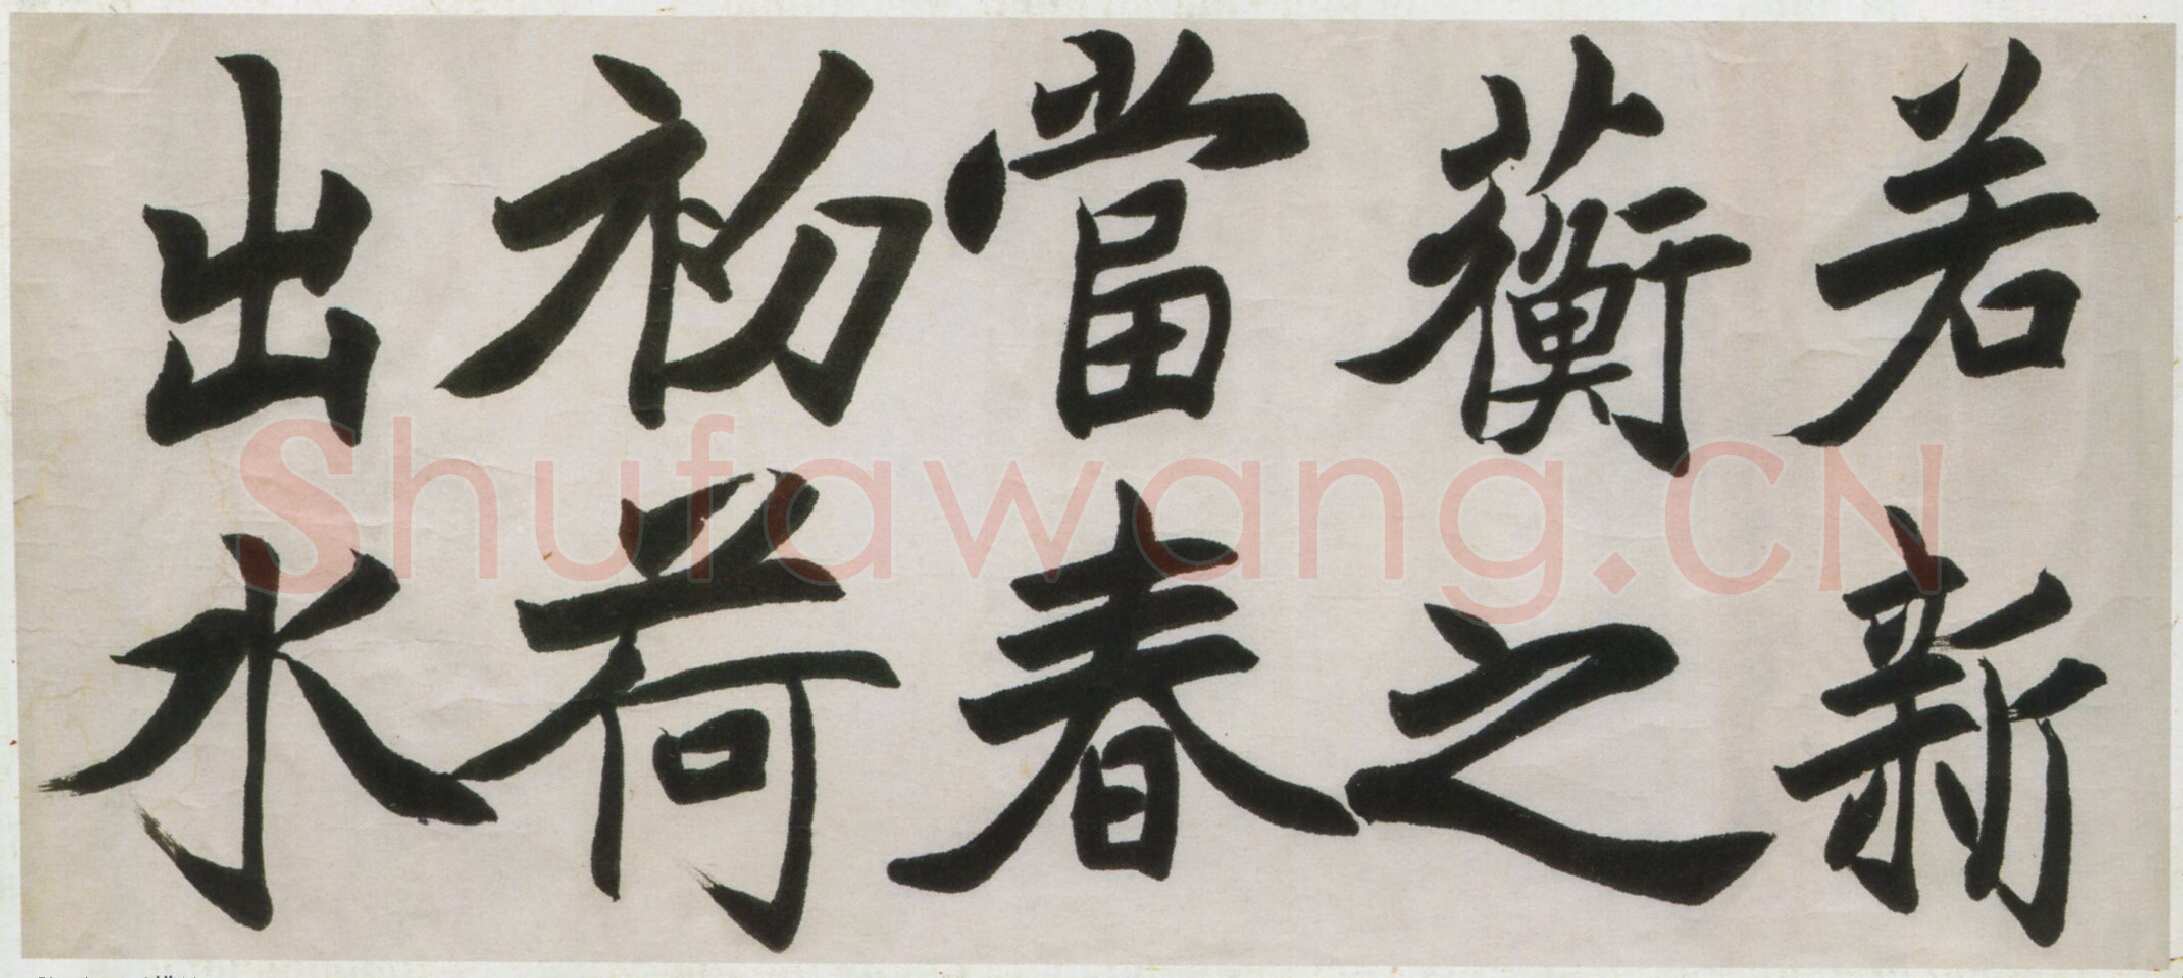 若新
蘅之
當春
初荷
出水
Shufawang.CN